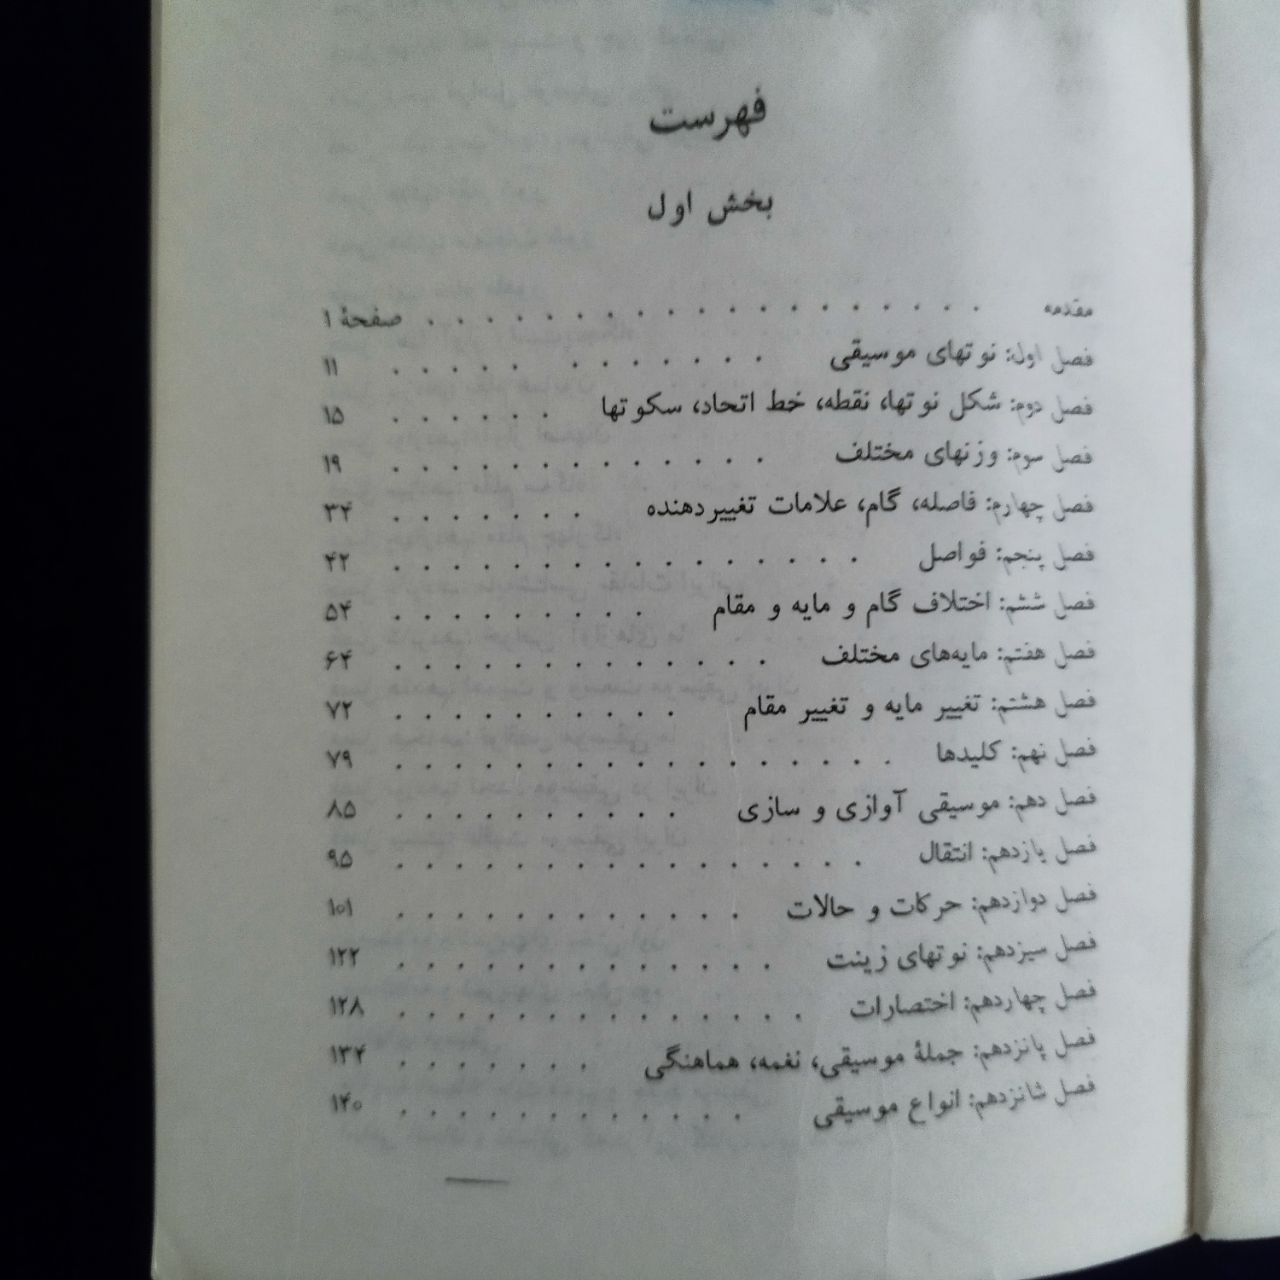 فهرست
بخش اول
مقدمه . . . . . . . . . . . . . . . . . . . صفحهٔ ۱
فصل اول: نوتهای موسیقی . . . . . . . . . . . . ۱۱
فصل دوم: شکل نوتها، نقطه، خط اتحاد، سکوتها . . . . . . ۱۵
فصل سوم: وزنهای مختلف . . . . . . . . . . . . . ۱۹
فصل چهارم: فاصله، گام، علامات تغییردهنده . . . . . . . ۳۴
فصل پنجم: فواصل . . . . . . . . . . . . . . . . ۴۲
فصل ششم: اختلاف گام و مایه و مقام . . . . . . . . . ۵۴
فصل هفتم: مایه‌های مختلف . . . . . . . . . . . . . ۶۴
فصل هشتم: تغییر مایه و تغییر مقام . . . . . . . . . . ۷۲
فصل نهم: کلیدها . . . . . . . . . . . . . . . . . ۷۹
فصل دهم: موسیقی آوازی و سازی . . . . . . . . . . ۸۵
فصل یازدهم: انتقال . . . . . . . . . . . . . . . . ۹۵
فصل دوازدهم: حرکات و حالات . . . . . . . . . . . . ۱۰۱
فصل سیزدهم: نوتهای زینت . . . . . . . . . . . . . ۱۲۲
فصل چهاردهم: اختصارات . . . . . . . . . . . . . . ۱۲۸
فصل پانزدهم: جملهٔ موسیقی، نغمه، هماهنگی . . . . . . . ۱۳۴
فصل شانزدهم: انواع موسیقی . . . . . . . . . . . . ۱۴۰